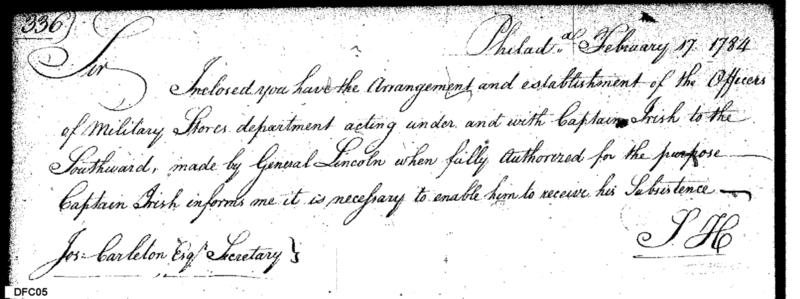 336)
Philad.a February 17 1784
Sir
Inclosed you have the Arrangement and establishment of the Officers
of Military Stores department acting under and with Captain Irish to the
Southward, made by General Lincoln when fully Authorized for the purpose
Captain Irish informs me it is necessary to enable him to receive his Subsistence
S H
Jos. Carleton Esqr. Secretary }
DFC05